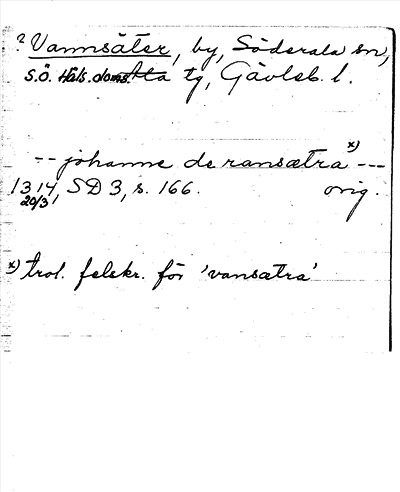 ? Vannsäter, by, Söderala sn,
S.Ö. Häls. doms. tg, Gävleb. l.
-- johanne de ransætra x) ---
1314, SD 3, s. 166. orig.
20/3
x) trol. felskr. för 'vansætra'